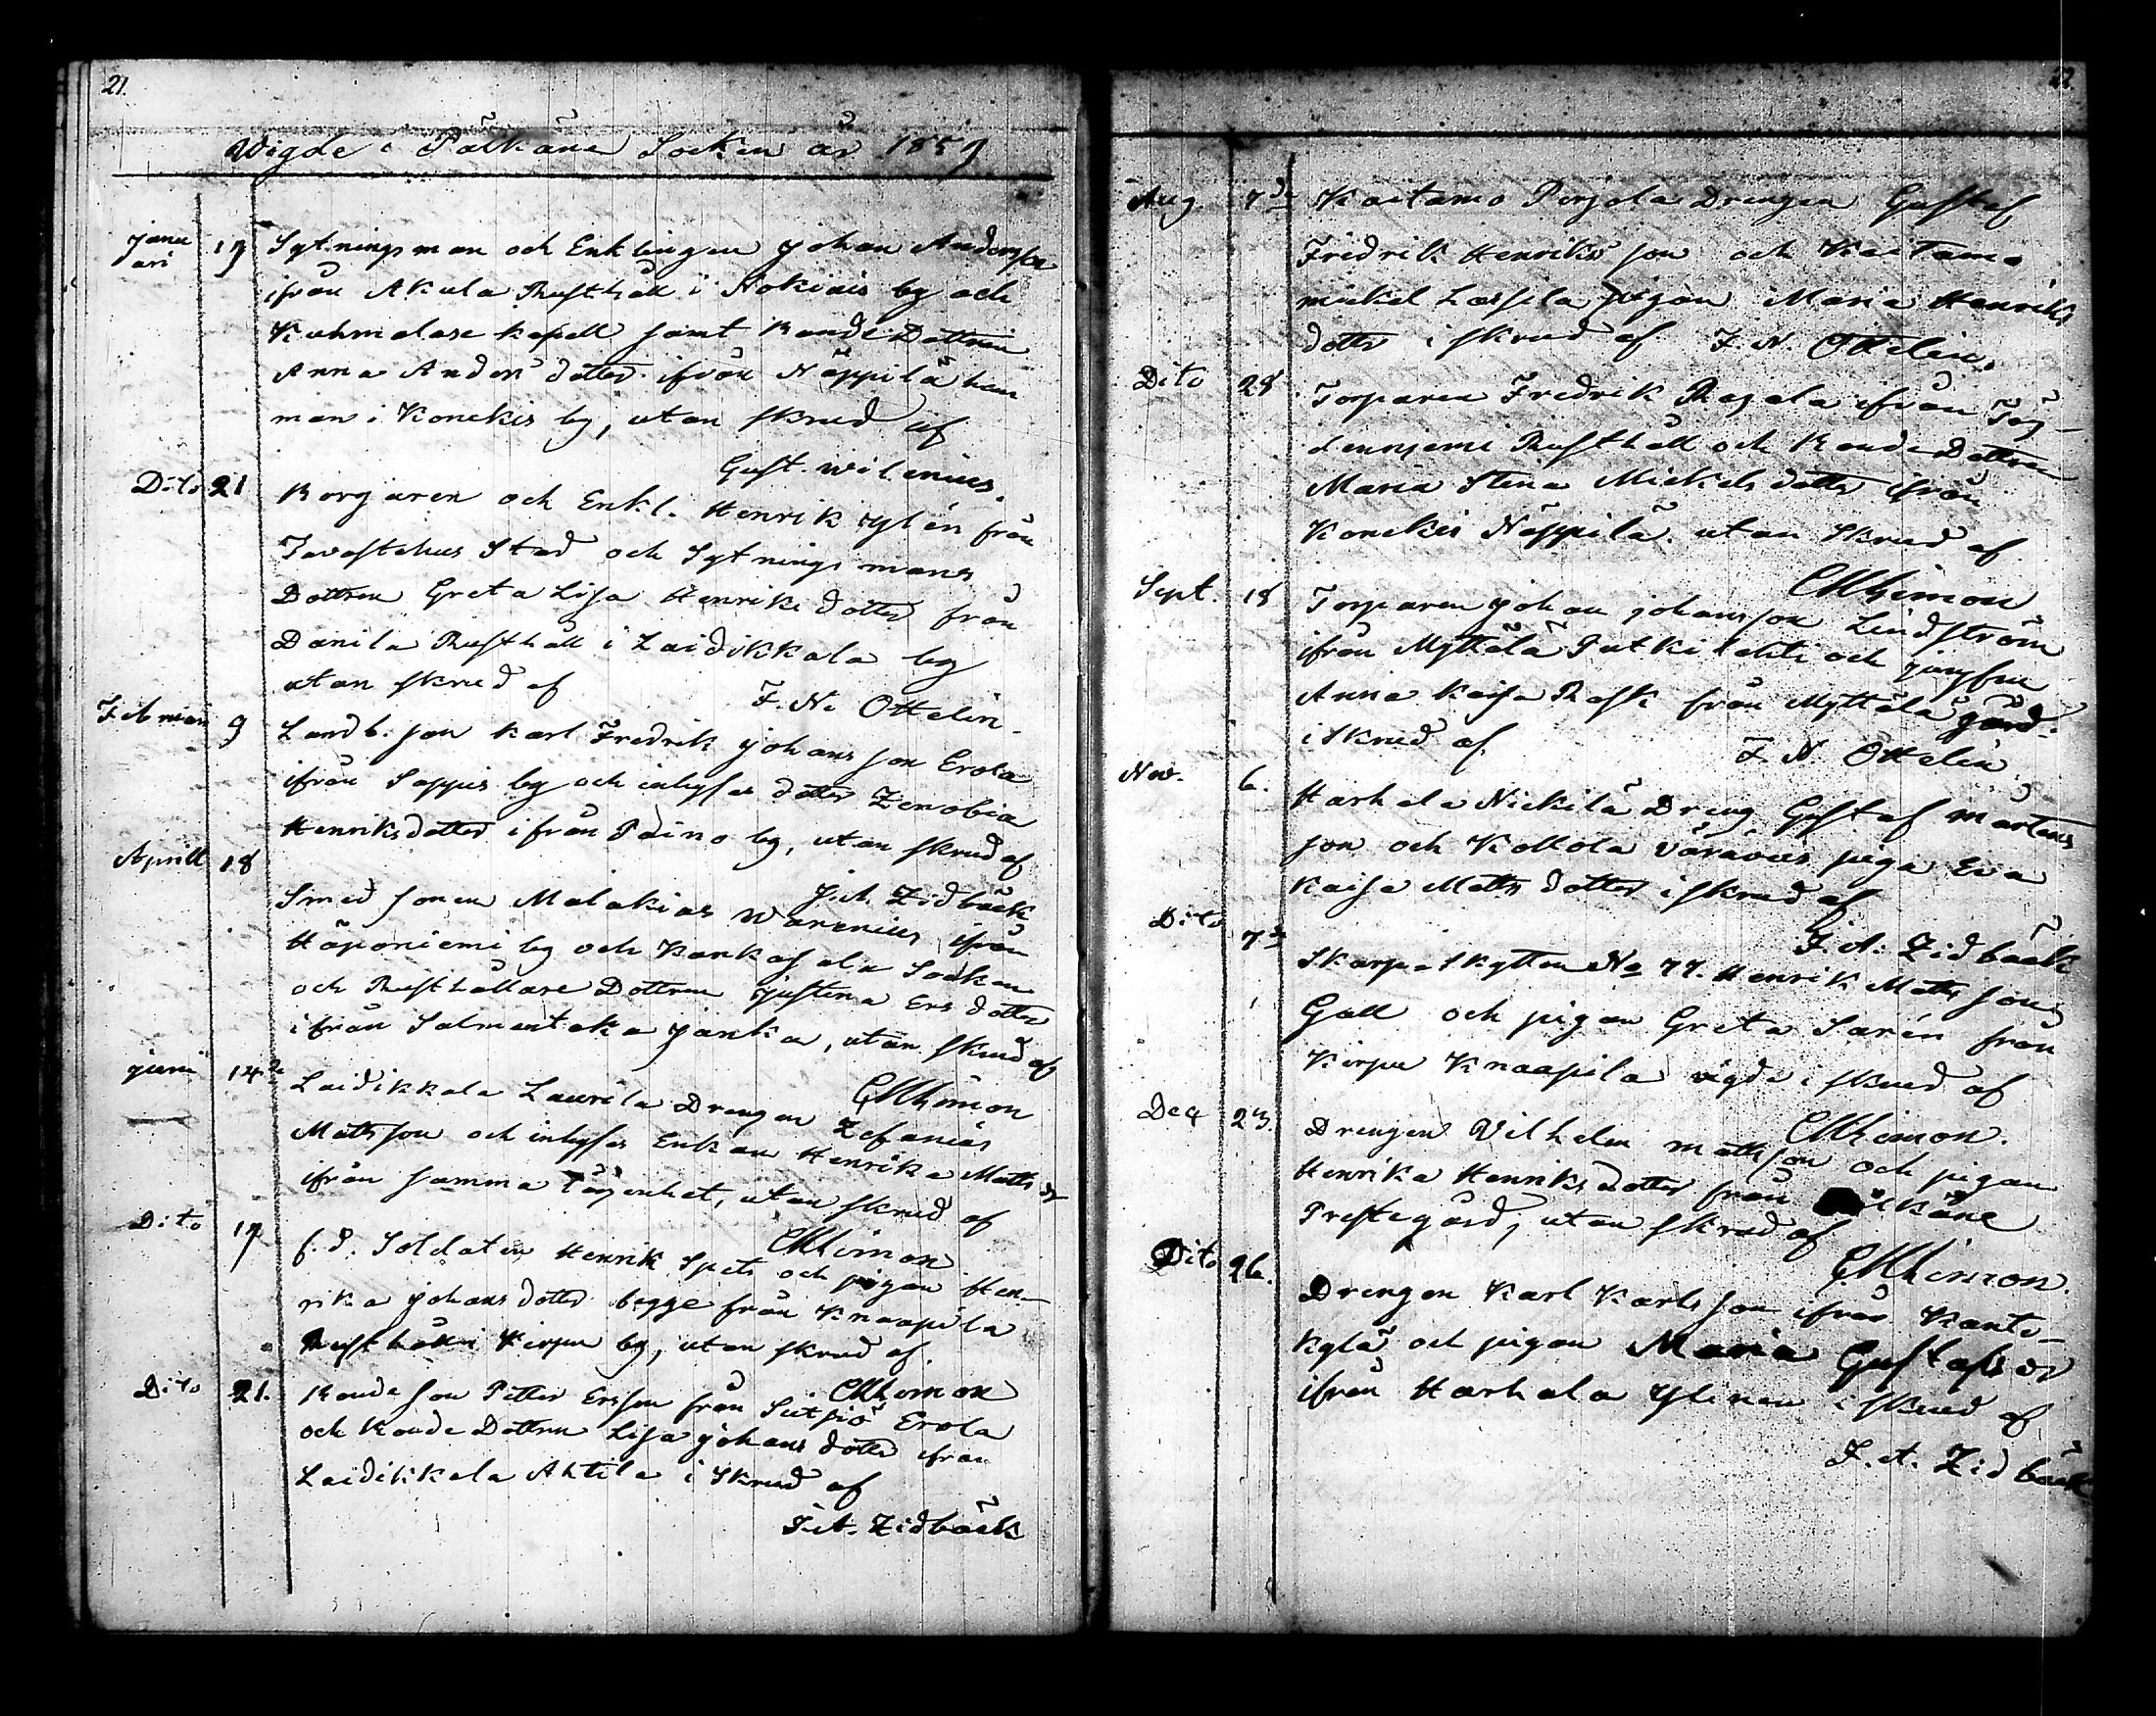 21.
Wigde i Pälkäne Socken år 1859
Janu
ari 19 Sytningsman och Enklingen Johan Andersson
ifrån Akula Rusthåll i Nokiais by och
Kuhmalax kapell samt Bonde Dottren
Anna Anders dotter ifrån Näppilä hem
man i Konekis by, utan skrud af
Gust. Wilenius.
Dito 21 Borgaren och Enkl. Henrik Ylén från
Tavastehus Stad och Sytnings mans
Dottren Greta Lisa Henriks dotter från
Danila Rusthåll i Laidikkala by
utan skrud af F. N. Ottelin.
Februari 9 Landb. son Karl Fredrik Johans son Erola
ifrån Sappis by och inhyses dotter Zenobia
Henriksdotter ifrån Paino by, utan skrud af
F. A. Zidbäck
Aprill 18 Smed sonen Malakias Warenius ifrån
Haponiemi by och Kankasala Socken
och Rusthållare Dottren Justina Ers dotter
ifrån Salmentaka Janka, utan skrud af
Juni 14de Laidikkala Laurila Drengen Zefanias
Mattsson och inhyses Enkan Henrika Matts dr
ifrån samma lägenhet, utan skrud af
Dito 17 f. d. Soldaten Henrik Spets och pigan Hen-
rika Johans dotter begge från Knaapila
Rusthåll i Kirpu by, utan skrud af
Dito 21. Bonde son Petter Ersson från Seitsiö Erola
och Bonde Dottren Lisa Johans dotter ifrån
Laidikkala Ahtila i Skrud af
F. A. Zidbäck
22.
Aug. 7de Kaitamo Perjola Drengen Gustaf
Fridrik Henriks son och Kaitamo
mickel Lassila pigan Maria Henriks
dotter i skrud af F. N. Ottelin.
Dito 28 Torparen Fredrik Ragala ifrån
Rusthåll och Bonde Dottren
Maria Stina Mickels dotter ifrån
Konekis Näppilä. utan Skrud af
Sept. 18 Torparen Johan Johansson Lindström
ifrån Myttälä Putki lahti och jungfru
Anna Kaisa Rask från Myttälä gård.
i Skrud af F. N. Ottelin
Nov. 6. Harhala Nickilä Dreng Gustaf Mårtens
son och Kollola piga Eva
Kaisa Matts dotter i skrud af
F. A. Zidbäck
Dito 7de Skarp-Skytten No 77. Henrik Matts son
Gall och pigan Greta Sarén från
Kirpu Knaapila vigde i skrud af
Dec 23. Drengen Vilhelm Mattsson och pigan
Henrika Henriks dotter från Pälkäne
Prestegård, utan skrud af
Dito 26. Drengen Karl Karls son ifrån Kanto-
kylä och pigan Maria Gustafs dr
ifrån Harhala Ylinen i skrud af
F. A. Zidbäck